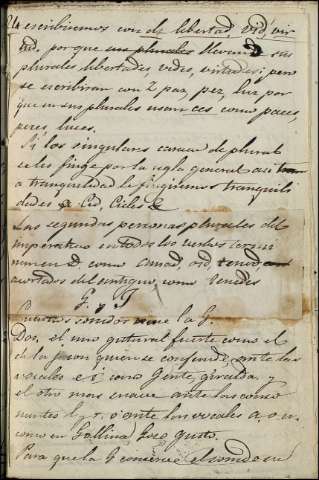 escribiremos con d, libertad vid, vir
tud, porque sus plurales llevan d sus
plurales libertades, vides, virtudes; pero
se escribiran con z paz, pez, luz por
que en sus plurales usan ces como paces,
peces, luces.
Si los singulares carecen de plural
se les finge por la regla general asi
a tranquilidad le fingiremos tranquili
dades a Cid, Cides &
Las segundas personas plurales del
imperativo en todos los verbos termi
nan en d como amad, oid tened
acortados del antiguo, como tenedes
G. y J
Cuantos sonidos tiene la G.
Dos, el uno gutural fuerte como el
de la j con quien se confunde, ante las
vocales e i como Gente, giralda, y
el otro mas suave ante las conso
nantes l y r. o ante las vocales a, o u.
como en Gallina Gozo Gusto.
Para que la G conserve el sonido su